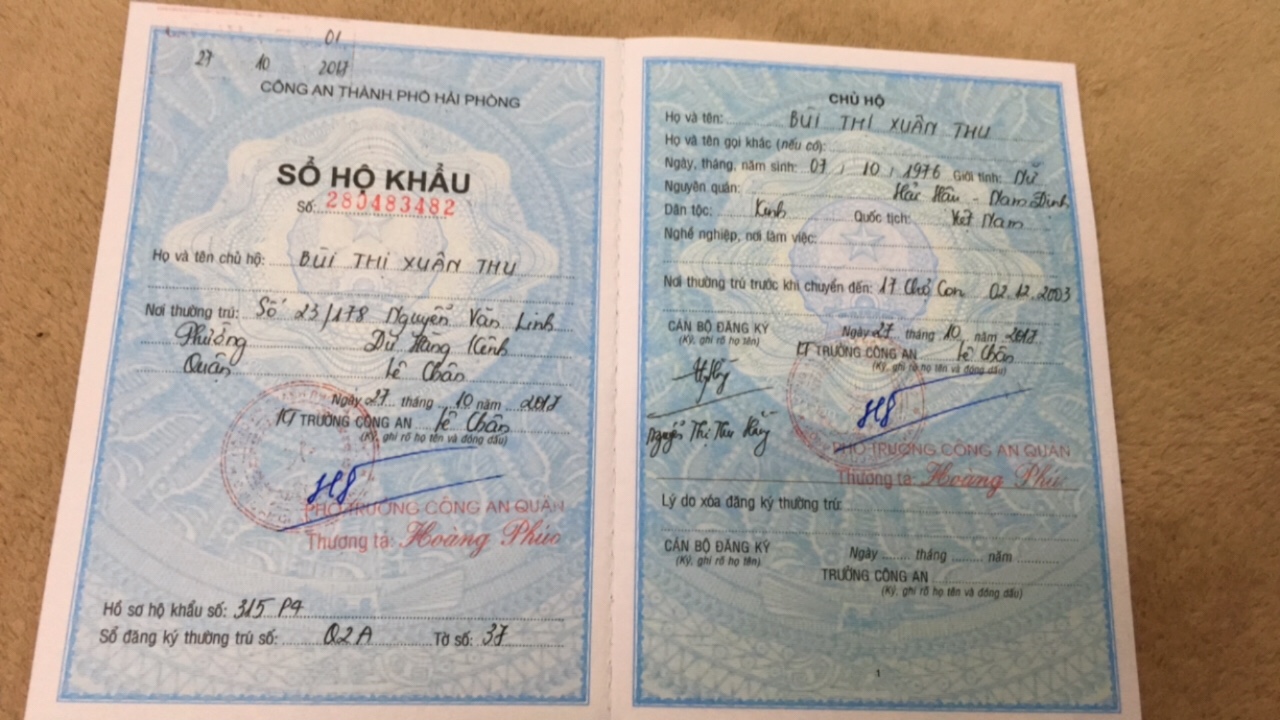 01
27 10 2017
CÔNG AN THÀNH PHỐ HẢI PHÒNG
SỔ HỘ KHẨU
Số: 280483482
Họ và tên chủ hộ: BÙI THỊ XUÂN THU
Nơi thường trú: Số 23/178 Nguyễn Văn Linh
Phường Dư Hàng Kênh
Quận Lê Chân
Ngày 27 tháng 10 năm 2017
KT TRƯỞNG CÔNG AN Lê Chân
(Ký, ghi rõ họ tên và đóng dấu)
PHÓ TRƯỞNG CÔNG AN QUẬN
Thượng tá: Hoàng Phúc
Hồ sơ hộ khẩu số: 315 P9
Sổ đăng ký thường trú số: 02A Tờ số: 37
CHỦ HỘ
Họ và tên: BÙI THỊ XUÂN THU
Họ và tên gọi khác (nếu có):
Ngày, tháng, năm sinh: 07 / 10 / 1976 Giới tính: Nữ
Nguyên quán: Hải Hậu - Nam Định
Dân tộc: Kinh Quốc tịch: Việt Nam
Nghề nghiệp, nơi làm việc:
Nơi thường trú trước khi chuyển đến: 17 Chợ Con 02.12.2003
CÁN BỘ ĐĂNG KÝ
(Ký, ghi rõ họ tên)
Ngày 27 tháng 10 năm 2017
KT TRƯỞNG CÔNG AN Lê Chân
(Ký, ghi rõ họ tên và đóng dấu)
Nguyễn Thị Thu Hằng
PHÓ TRƯỞNG CÔNG AN QUẬN
Thượng tá: Hoàng Phúc
Lý do xóa đăng ký thường trú:
CÁN BỘ ĐĂNG KÝ
(Ký, ghi rõ họ tên)
Ngày ....... tháng ........ năm
TRƯỞNG CÔNG AN
(Ký, ghi rõ họ tên và đóng dấu)
1